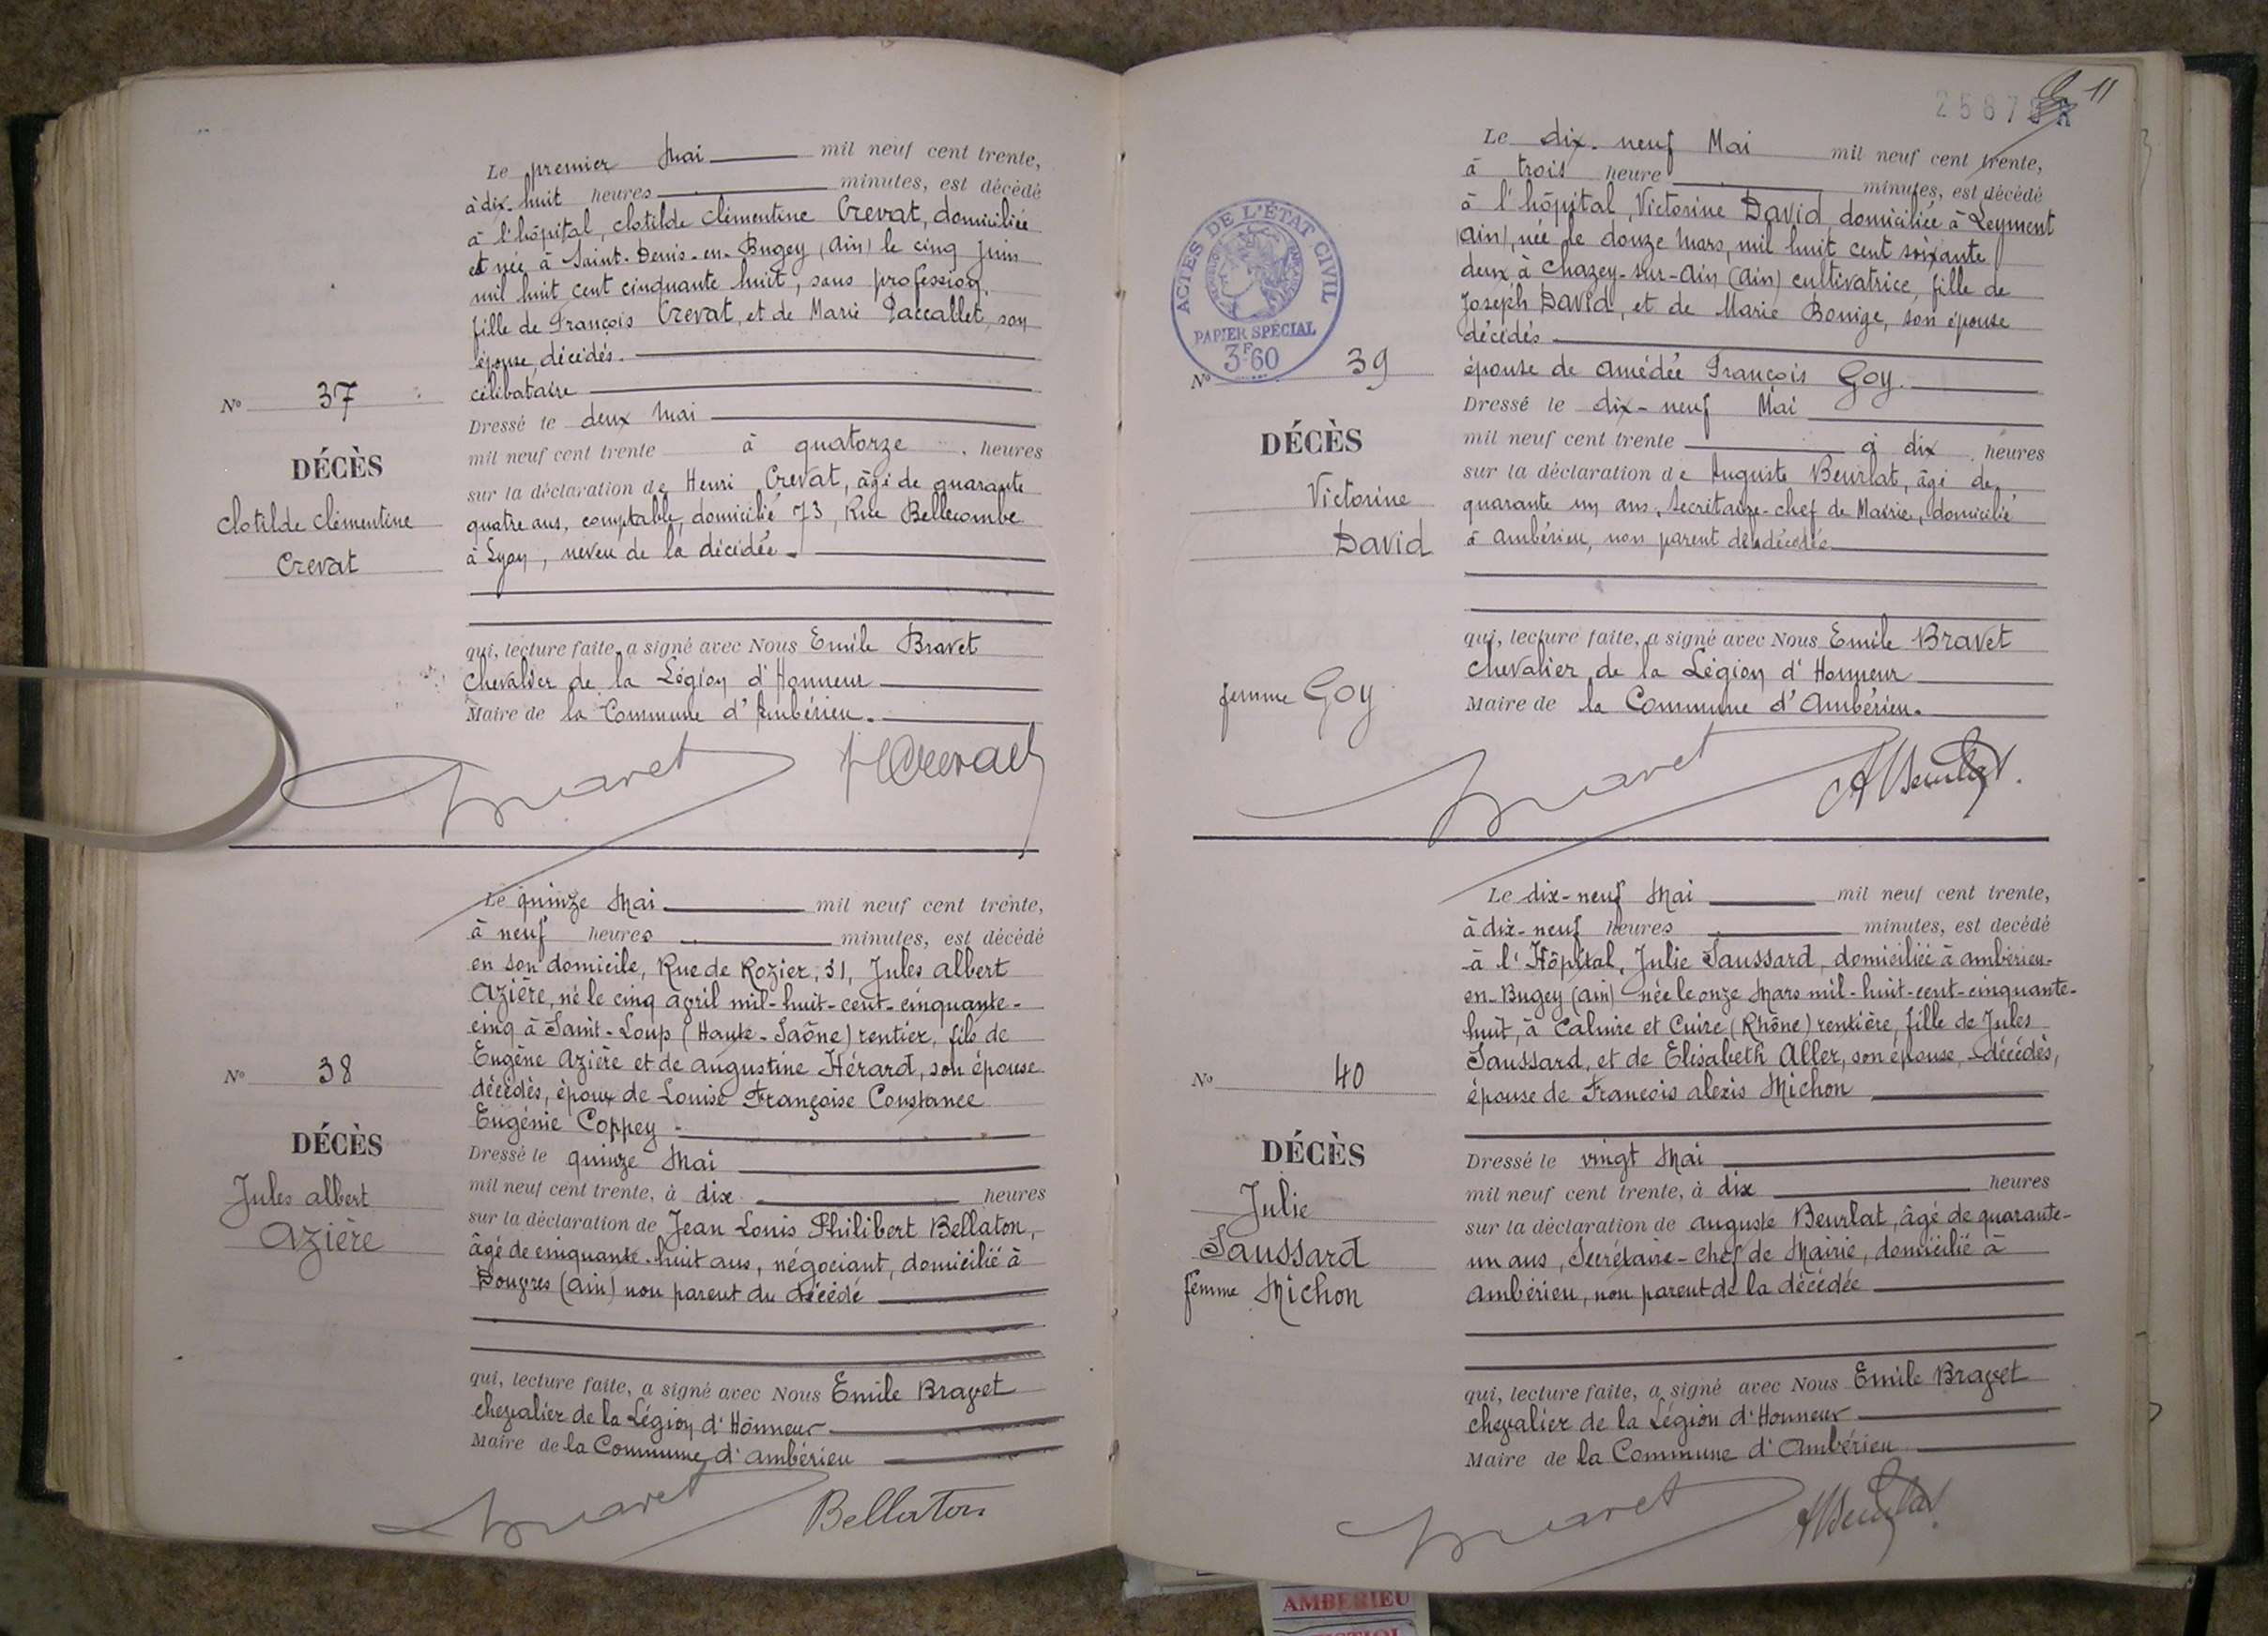 Le premier Mai mil neuf cent trente,
à dix-huit heures minutes, est décédé
à l'hôpital, Clotilde Clémentine Crevat, domiciliée
et née à Saint-Denis-en-Bugey (Ain) le cinq Juin
mil huit cent cinquante huit, sans profession,
fille de François Crevat, et de Marie Paccallet, son
épouse, décédés.
célibataire
N° 37
Dressé le deux Mai
mil neuf cent trente à quatorze heures
DÉCÈS
sur la déclaration de Henri Crevat, âgé de quarante
Clotilde Clémentine
quatre ans, comptable, domicilié 73, Rue Bellecombe
Crevat
à Lyon, neveu de la décédée.
qui, lecture faite, a signé avec Nous Emile Bravet
Chevalier de la Légion d'Honneur
Maire de la Commune d'Ambérieu.
Bravet HCrevat
Le quinze Mai mil neuf cent trente,
à neuf heures minutes, est décédé
en son domicile, Rue de Rozier, 31, Jules Albert
Azière, né le cinq avril mil-huit-cent-cinquante-
cinq à Saint-Loup (Haute-Saône) rentier, fils de
Eugène Azière et de Augustine Hérard, son épouse
N° 38
décédés, époux de Louise Françoise Constance
Eugénie Coppey
DÉCÈS
Dressé le quinze Mai
Jules Albert
mil neuf cent trente, à dix heures
Azière
sur la déclaration de Jean Louis Philibert Bellaton,
âgé de cinquante-huit ans, négociant, domicilié à
(Ain) non parent du décédé
qui, lecture faite, a signé avec Nous Emile Bravet
chevalier de la Légion d'Honneur
Maire de la Commune d'Ambérieu
Bravet Bellaton
11
2567
Le dix-neuf Mai mil neuf cent trente,
à trois heure minutes, est décédé
à l'hôpital, Victorine David, domiciliée à Leyment
(Ain), née le douze Mars, mil huit cent soixante
deux, à Chazey-sur-Ain (Ain) cultivatrice, fille de
Joseph David, et de Marie Bonige, son épouse
décédés
ACTES DE L'ÉTAT CIVIL
PAPIER SPÉCIAL
3F60
N° 39
épouse de Amédée François Goy.
Dressé le dix-neuf Mai
DÉCÈS
mil neuf cent trente à dix heures
sur la déclaration de Auguste Beurlat, âgé de
Victorine
quarante un ans, Secrétaire-chef de Mairie, domicilié
David
à Ambérieu, non parent de la décédée
qui, lecture faite, a signé avec Nous Emile Bravet
Chevalier de la Légion d'Honneur
femme Goy
Maire de la Commune d'Ambérieu.
Bravet ABeurlat.
Le dix-neuf Mai mil neuf cent trente,
à dix-neuf heures minutes, est decédé
à l'Hôpital, Julie Saussard, domiciliée à Ambérieu-
en-Bugey (Ain) née le onze Mars mil-huit-cent-cinquante-
huit, à Caluire et Cuire (Rhône) rentière, fille de Jules
Saussard, et de Elisabeth Aller, son épouse, décédés,
N° 40
épouse de François Alexis Michon
DÉCÈS
Dressé le vingt Mai
Julie
mil neuf cent trente, à dix heures
Saussard
sur la déclaration de Auguste Beurlat, âgé de quarante-
un ans, Secrétaire-chef de Mairie, domicilié à
femme Michon
Ambérieu, non parent de la décédée
qui, lecture faite, a signé avec Nous Emile Bravet
chevalier de la Légion d'Honneur
Maire de la Commune d'Ambérieu
Bravet ABeurlat.
AMBERIEU